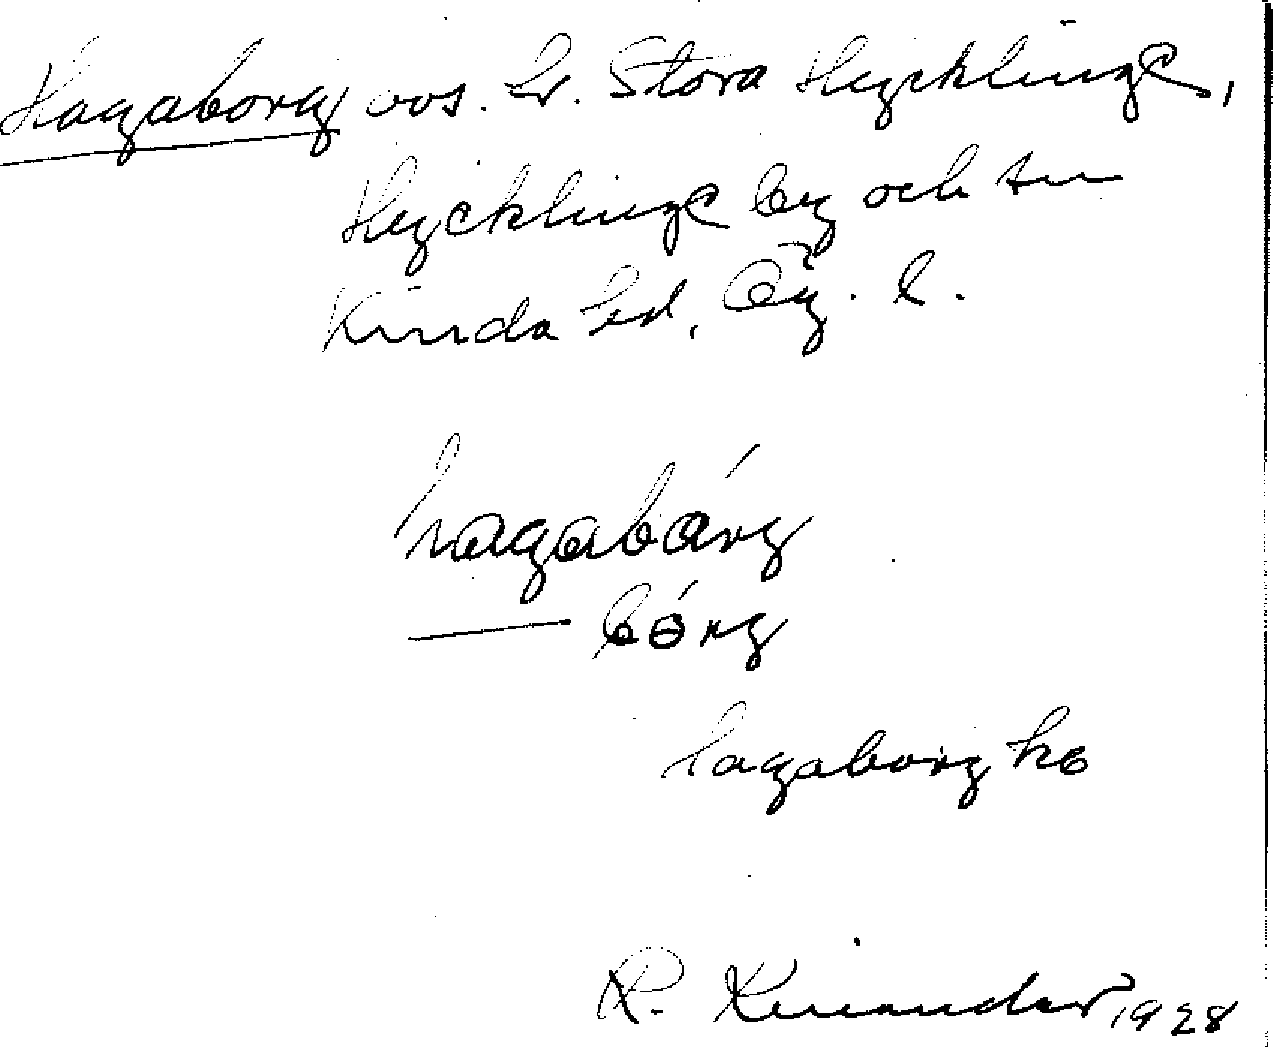 Hagaborg avs. hr. Stora Hycklinge,
Hycklinge by och sn
Kinda hd, Ög. l.
hagabárg
— bórg
hagaborg ko
R. Kinander 1928